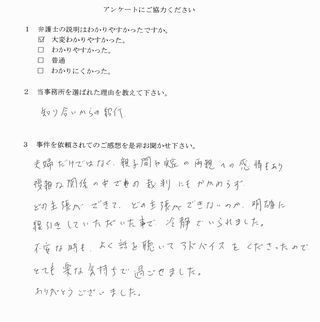 アンケートにご協力ください
1 弁護士の説明はわかりやすかったですか。
☑ 大変わかりやすかった。
□ わかりやすかった。
□ 普通
□ わかりにくかった。
2 当事務所を選ばれた理由を教えて下さい。
知り合いからの紹介
3 事件を依頼されてのご感想を是非お聞かせ下さい。
夫婦だけではなく、親子間や嫁の両親への感情もあり
複雑な関係の中での裁判にもかかわらず
どの主張ができて、どの主張ができないのか、明確に
線引きしていただいた事で冷静でいられました。
不安な時も、よく話を聴いてアドバイスをくださったので
とても楽な気持ちで過ごせました。
ありがとうございました。